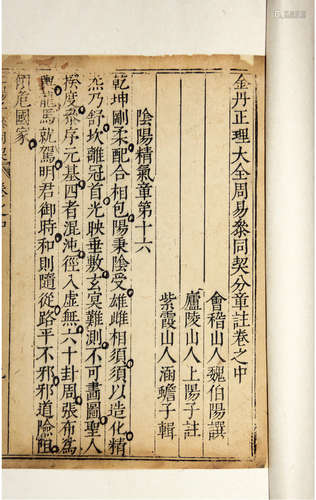 金丹正理大全周易叅同契分章註卷之中
會稽山人魏伯陽譔
廬陵山人上陽子註
紫霞山人涵蟾子輯
陰陽精氣章第十六
乾坤剛柔配合相包陽秉陰受雄雌相須須以造化精
炁乃舒坎離冠首光映垂敷玄冥難測不可畫圖聖人
揆度叅序元基四者混沌徑入虛無六十卦周張布為
輿龍馬就駕明君御時和則隨從路平不邪邪道險阻
傾危國家